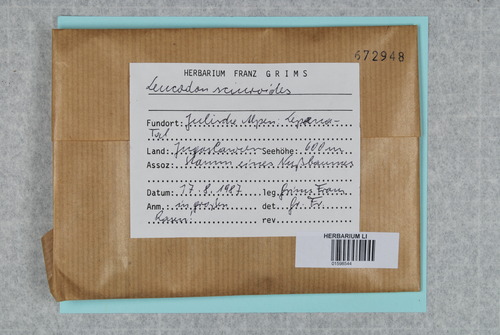 672948
HERBARIUM FRANZ GRIMS
Leucodon sciuroides
Fundort: Julische Alpen:
Tal
Land: Jugoslawien Seehöhe: 600m
Assoz: Stamm eines Nußbaumes
Datum: 17.8.1987 leg. Grims Franz
Anm. in großen det. Gr. Fr.
Rasen rev.
HERBARIUM LI